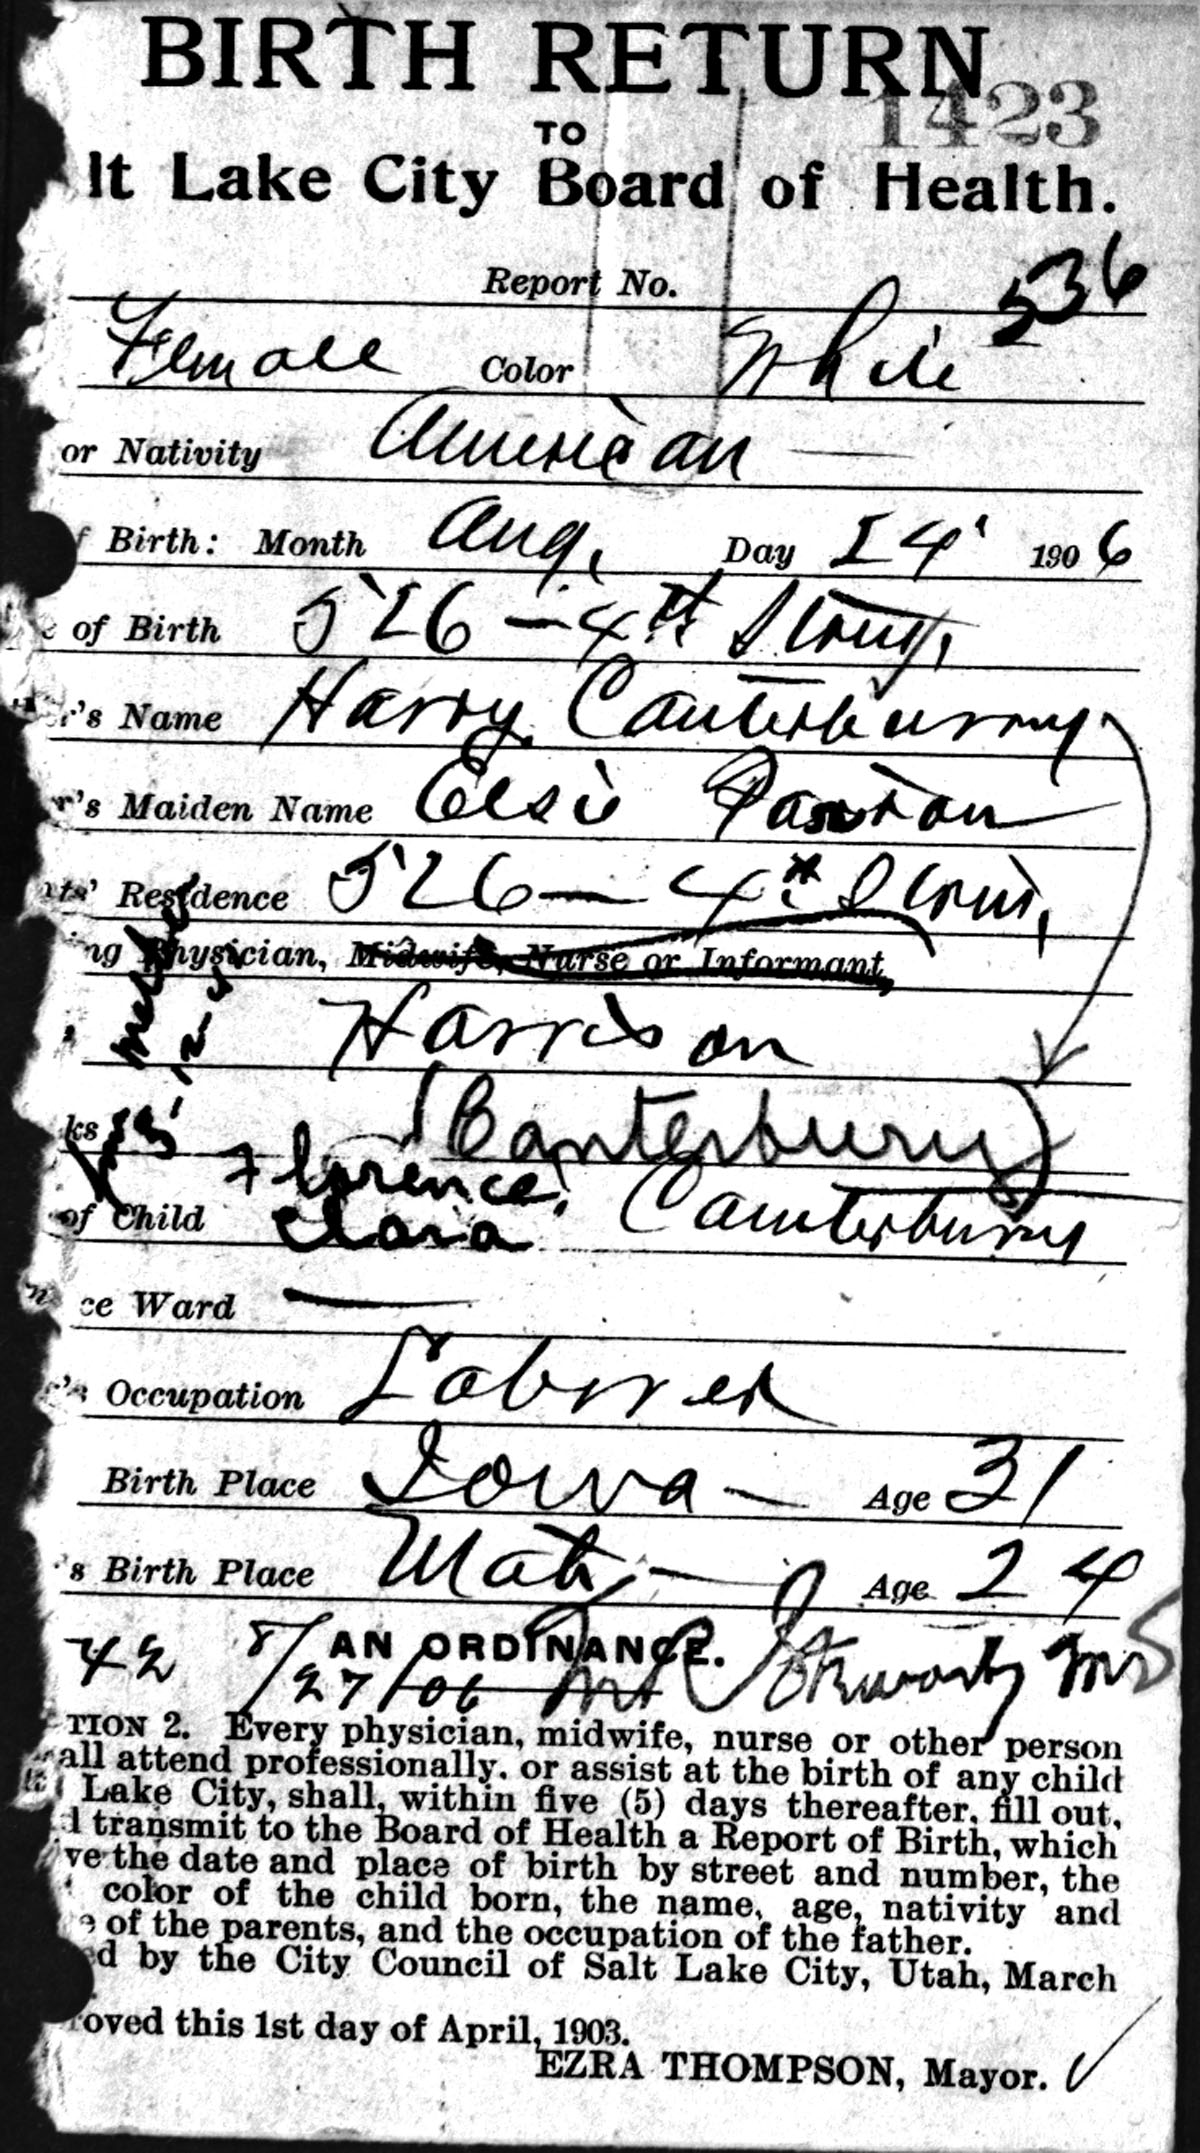 BIRTH RETURN
1423
TO
lt Lake City Board of Health.
Report No. 536
Female Color White
or Nativity American —
f Birth: Month Aug. Day 24 1906
e of Birth 526 — 4th
r's Name Harry Canterburry
r's Maiden Name Elsie
ts' Residence 526 — 4th
ng Physician, Midwife, Nurse or Informant,
Harrison
ks (Canterbury)
Florence
of Child Clara Canterburry
ce Ward —
's Occupation Laborer
Birth Place Iowa — Age 31
's Birth Place Utah, — Age 24
42 8/27/06
AN ORDINANCE.
TION 2. Every physician, midwife, nurse or other person
all attend professionally, or assist at the birth of any child
Lake City, shall, within five (5) days thereafter, fill out,
d transmit to the Board of Health a Report of Birth, which
ve the date and place of birth by street and number, the
color of the child born, the name, age, nativity and
e of the parents, and the occupation of the father.
ed by the City Council of Salt Lake City, Utah, March
roved this 1st day of April, 1903.
EZRA THOMPSON, Mayor.